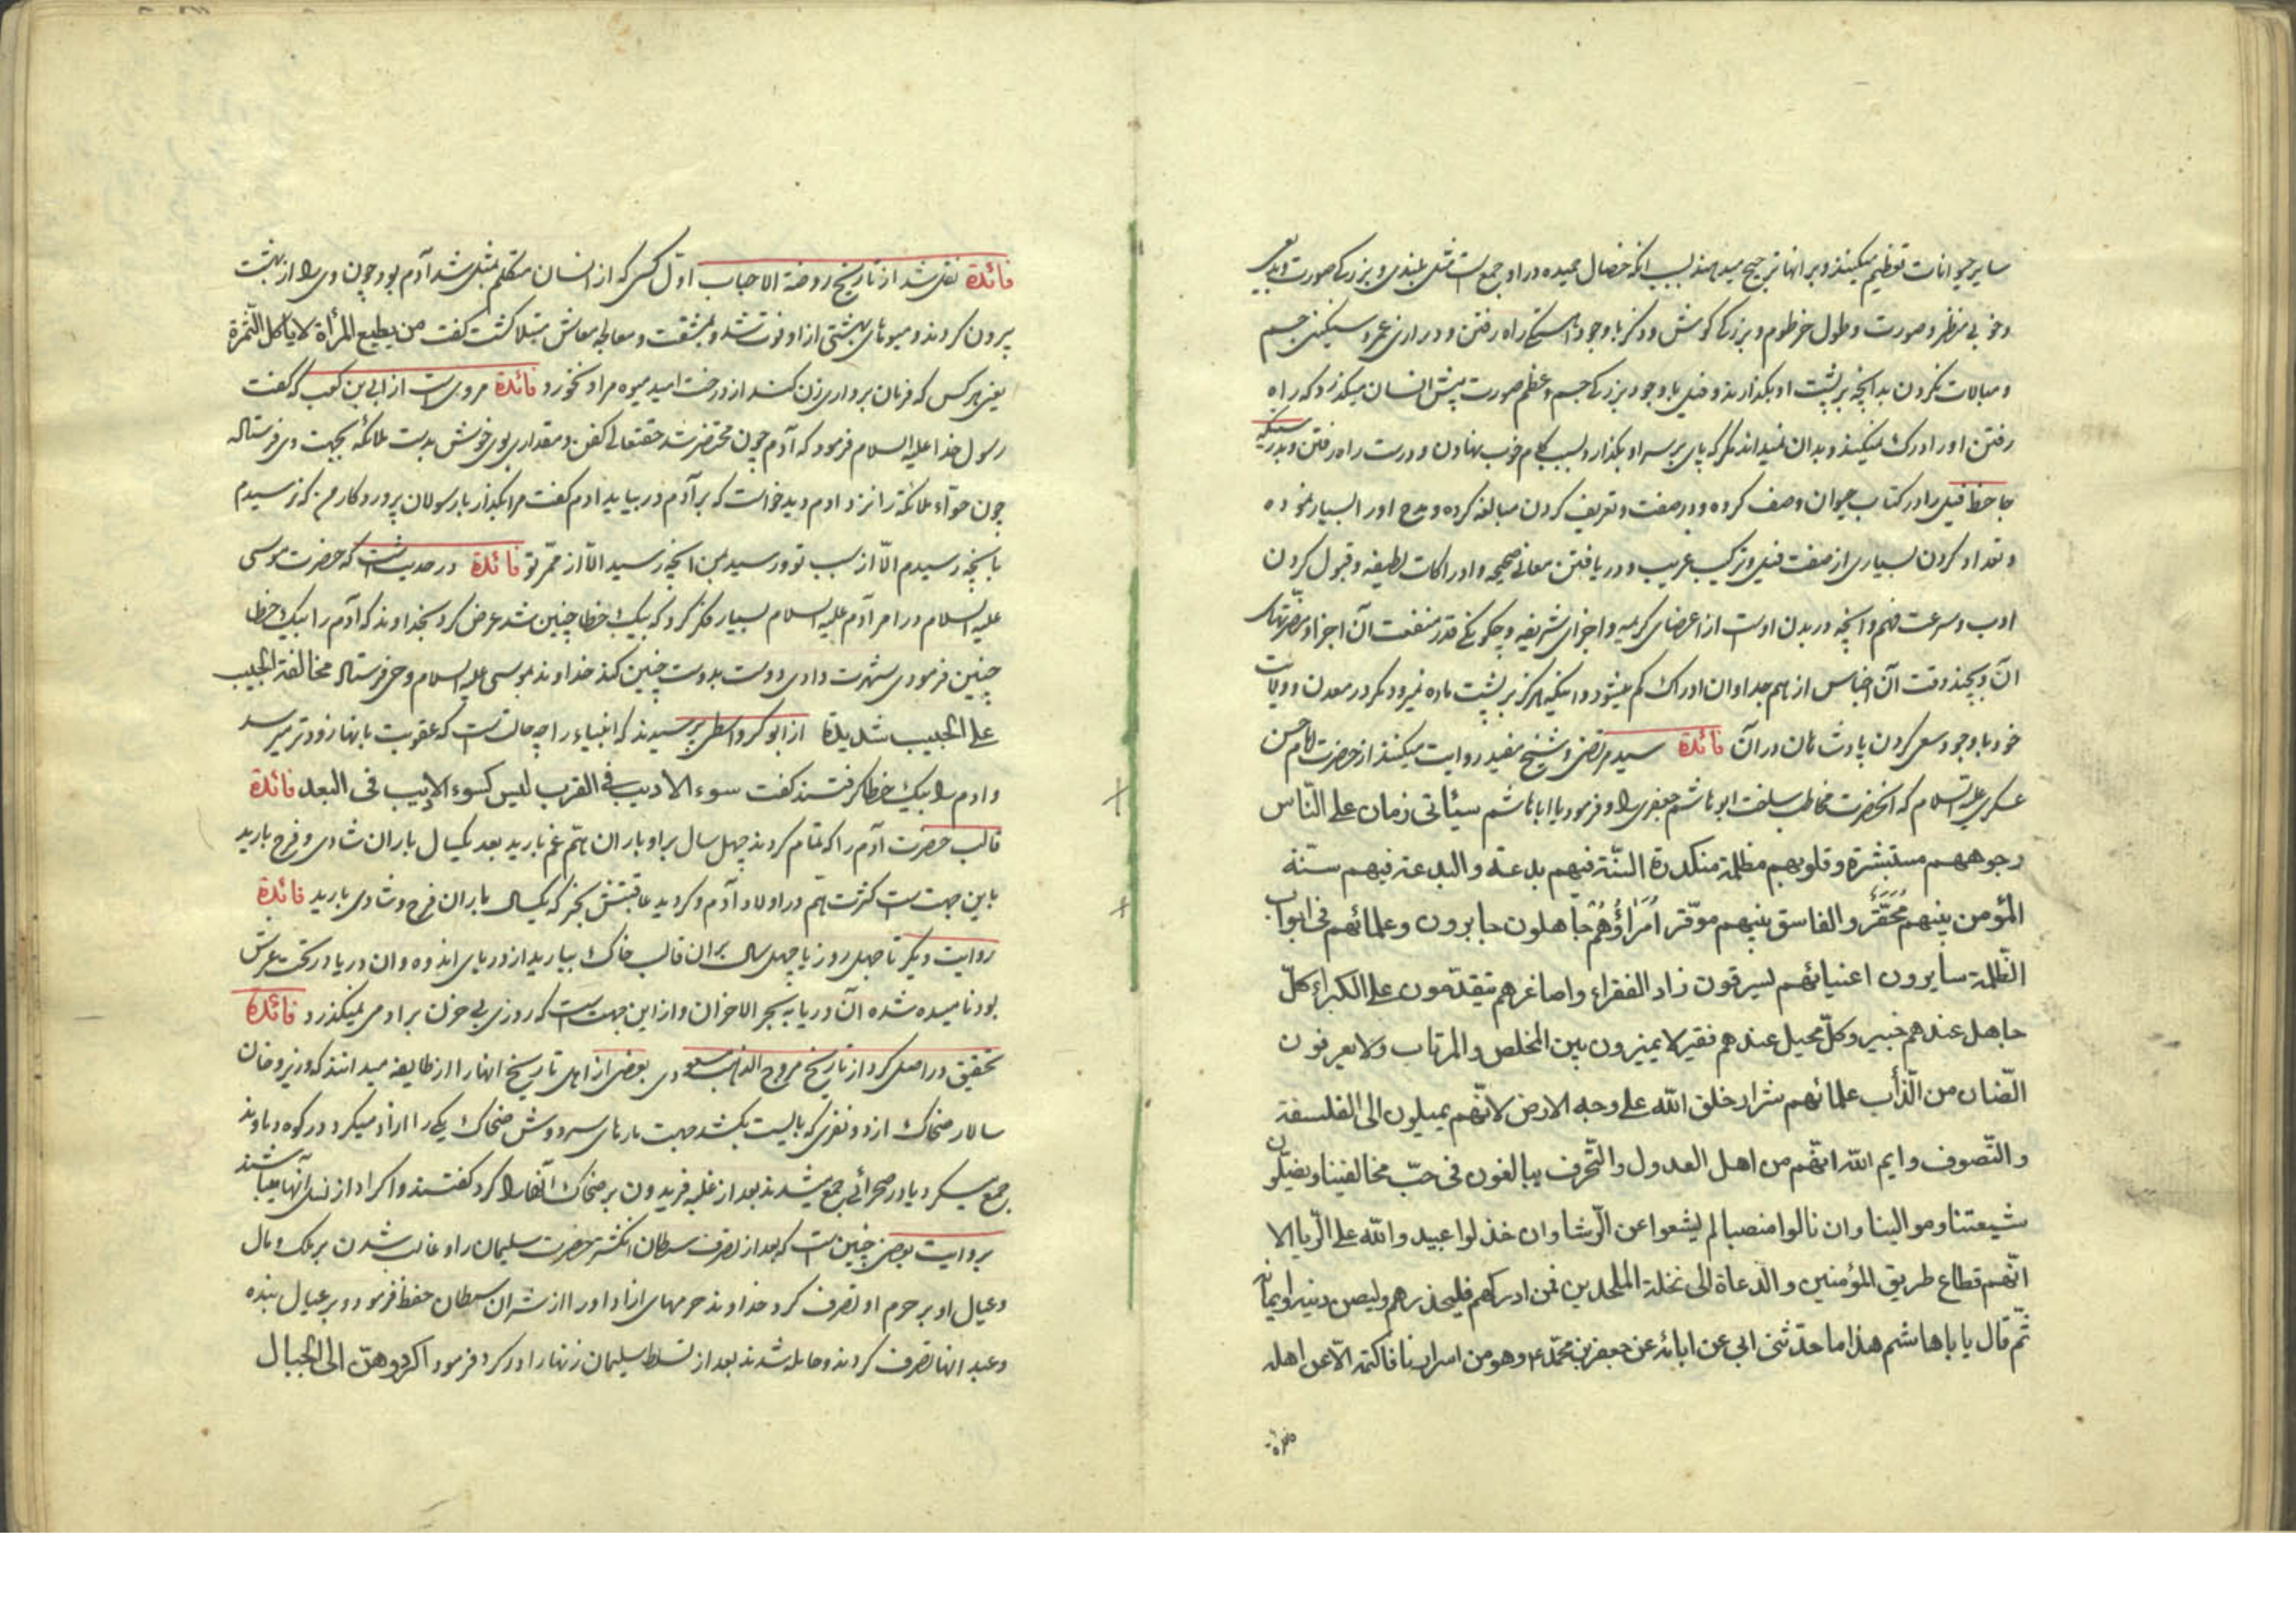 سایر حیوانات تعظیم میکنند و بر انها ترجیح میدهند بسبب انکه خصال حمیده در او جمع است مثل بلندی و بزرکی صورت و بدیعی
و خوبی منظر و صورت و طول خرطوم و بزرکی کوش و ذکر با وجود اهستکی راه رفتن و درازی عمر و سنکینی جسم
و مبالات نکردن بدانچه بر پشت او بکذارند و فیل با وجود بزرکی جسم و عظم صورت پیش انسان میکذرد که راه
رفتن او را درک نمیکند و بدان نمیداند مکر که پای بر سر او بکذارد بسبب کام خوب نهادن و درست راه رفتن و بدرستیکه
جاحظ فیل را در کتاب حیوان وصف کرده و در صفت و تعریف کردن مبالغه کرده و مدح او را بسیار نموده
و تعداد کردن بسیاری از صفت فیل و ترکیب غریب و دریافتن معانی صحیحه و ادراکات لطیفه و قبول کردن
ادب و سرعت فهم و آنچه در بدن اوست از اعضای کریمه و اجزای شریفه و چکونکی قدر منفعت آن اجزا و مضرتهای
آن و بچند وقت آن اجناس از هم جدا و ان ادراک کم میشود و اینکه هرکز بر پشت ماده نمیرود مکر در معدن و ولایت
خود با وجود سعی کردن پادشاهان در آن فائدة سید مرتضی و شیخ مفید روایت میکنند از حضرت امام حسن
عسکری علیه السلام که انحضرت مخاطب ساخت ابوهاشم جعفری را و فرمود یا اباهاشم سیأتی زمان علی النّاس
وجوههم مستبشرة و قلوبهم مظلمة منکدرة السّنّة فیهم بدعة و البدعة فیهم سنّة
المؤمن بینهم مُحَقَّرٌ و الفاسق بینهم موقّر اُمَرَاؤُهُمْ جاهلون جابرون و علمائهم فی ابواب
الظّلمة سایرون اعنیائهم یسرقون زاد الفقراء و اصاغرهم یتقدّمون علی الکبراء کلّ
جاهل عندهم خبیر و کلّ محیل عندهم فقیر لا یمیزون بین المخلص و المرتاب و لا یعرفون
الضّان من الذّأب علمائهم شرار خلق الله علی وجه الارض لانّهم یمیلون الی الفلسفة
و التّصوف و ایم الله انّهم من اهل العدول و التّحرف یبالغون فی حبّ مخالفینا و یضلّون
شیعتنا و موالینا و ان نالوا منصبا لم یشبعوا عن الرّشا و ان خذلوا عبدوا الله علی الرّیا الا
انّهم قطاع طریق المؤمنین و الدّعاة الی نخلة الملحدین فمن ادرکهم فلیحذرهم ولیصن دینه و ایمانه
ثمّ قال یا باهاشم هذا ما حدّثنی ابی عن ابائه عن جعفر بن محمّد ع و هو من اسرارنا فاکتمه الّا عن اهله
فائدة نقل شد از تاریخ روضة الاحباب اوّل کسی که از انسان متکلم بمثل شد آدم بود چون وی را از بهشت
بیرون کردند و میوهای بهشتی از او فوت شد و بمشقت و معالجه معاش مبتلا کشت کفت من یطیع المرأة لا یاکل الثّمرة
یعنی هرکس که فرمان برداری زن کند از درخت امید میوه مراد نخورد فائدة مروی است از ابی بن کعب که گفت
رسول خدا علیه السلام فرمود که آدم چون محتضر شد حقتعالی کفن و مقداری بوی خوش بدست ملائکه بجهت وی فرستاد
چون حوّاء ملائکه را نزد ادم دید خواست که بر آدم در بیاید ادم کفت مرا بکذار با رسولان پروردکار من که نرسیدم
بانچه رسیدم الّا از سبب تو و نرسید بمن انچه رسید الّا از ممّر تو فائدة در حدیث است که حضرت موسی
علیه السلام در امر آدم علیه السلام بسیار فکر کرد که بیک خطا چنین شد عرض کرد بخداوند که آدم را بیک خطا
چنین فرمودی شهرت دادی دوست بدوست چنین کند خداوند بموسی علیه السلام وحی فرستاد مخالفة الحبیب
علی الحبیب شدیدة از ابوبکر واسطی پرسیدند که انبیاء را چه حالت است که عقوبت بانها زودتر میرسد
و ادم را بیک خطا کرفتند کفت سوء الادب فی القرب لیس کسوء الادب فی البعد فائدة
قالب حضرت آدم را که تمام کردند چهل سال بر او باران همّ غم بارید بعد یکسال باران شادی و فرح بارید
باین جهت است کثرت همّ در اولاد آدم و کردید عاقبتش بخیر که یکسال باران فرح و شادی بارید فائدة
روایت دیکر تا چهل روز یا چهل سال بر ان قالب خاک ببارید از دریای اندوه و ان دریا در تحت عرش
بود نامیده شده آن دریا به بحر الاحزان و از این جهت است که روزی بی حزن بر ادمی نمیکذرد فائدة
تحقیق در اصل کرد از تاریخ مروج الذهب مسعودی بعضی از اهل تاریخ انها را از طایفه میدانند که وزیر و خان
سالار ضحاک از دو نفری که بایست بکشد جهت مارهای سر دوش ضحاک یکی را ازاد میکرد در کوه دماوند
جمع میکرد یا در صحرائی جمع میشدند بعد از غلبه فریدون بر ضحاک آنها را کرد کفتند و اکراد از نسل آنها میباشند
بروایت بعضی چنین است که بعد از تصرف شیطان انکشتر حضرت سلیمان را و غالب شدن بر ملک و مال
و عیال او بر حرم او تصرف کرد خداوند حرمهای ازاد او را از شر ان شیطان حفظ فرمود و بر عیال بنده
و عبد انها تصرف کردند و حامله شدند بعد از تسلط سلیمان زنها را دور کرد فرمود اکردوهنّ الی الجبال